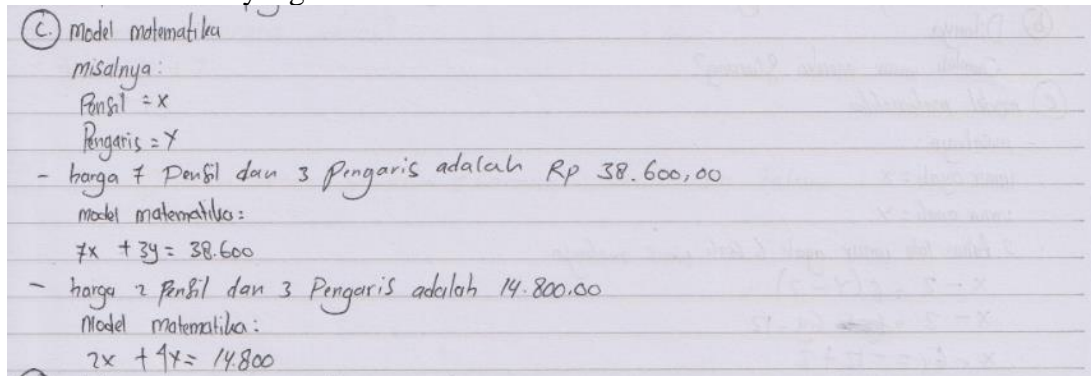 C. Model matematika
misalnya:
Pensil = x
Pengaris = y
- harga 7 Pensil dan 3 Pengaris adalah Rp 38.600,00
model matematika:
7x + 3y = 38.600
- harga 2 Pensil dan 3 Pengaris adalah 14.800.00
Model matematika:
2x + 4y = 14.800